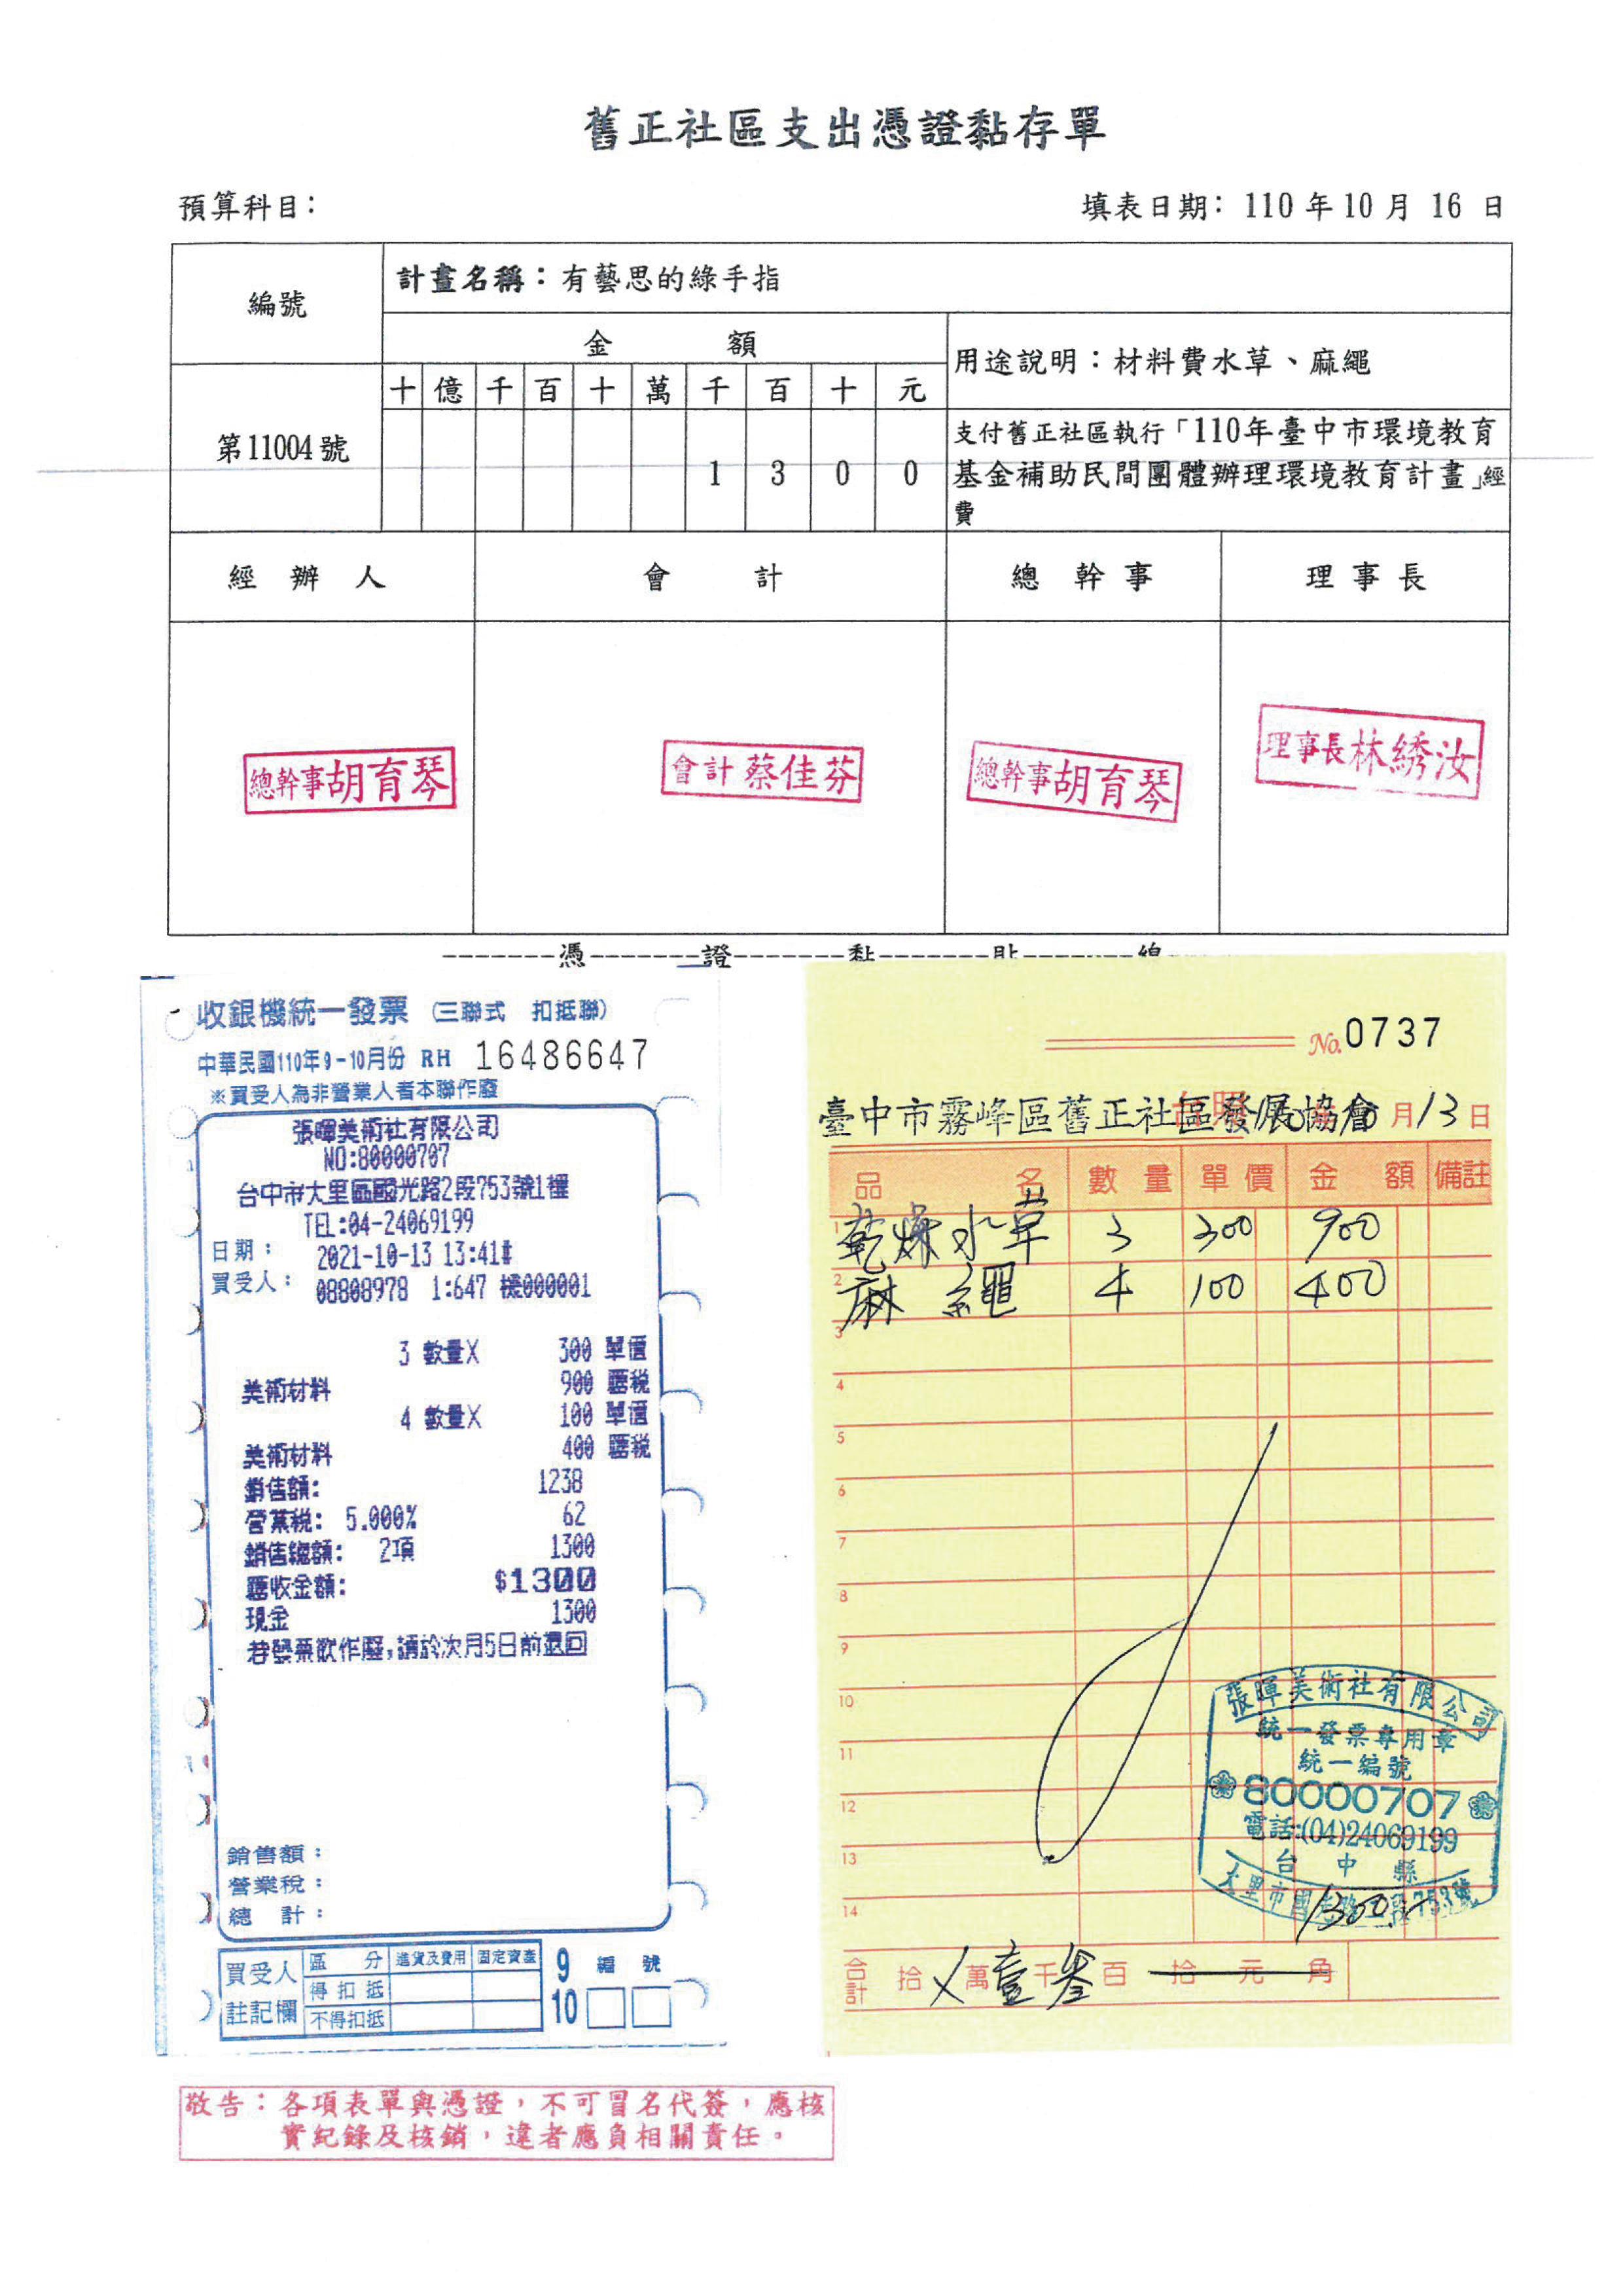 舊正社區支出憑證黏存單
預算科目：
填表日期：110 年 10 月 16 日
編號
計畫名稱：有藝思的綠手指
金 額
用途說明：材料費水草、麻繩
十 億 千 百 十 萬 千 百 十 元
第11004號
1 3 0 0
支付舊正社區執行「110年臺中市環境教育
基金補助民間團體辦理環境教育計畫」經
費
經 辦 人
會 計
總 幹 事
理 事 長
總幹事胡育琴
會計蔡佳芬
總幹事胡育琴
理事長林綉汝
-------憑-------證-------黏-------貼-------線
收銀機統一發票 (三聯式 扣抵聯)
中華民國110年9-10月份 RH 16486647
※買受人為非營業人者本聯作廢
張暉美術社有限公司
NO:80000707
台中市大里區國光路2段753號1樓
TEL:04-24069199
日期： 2021-10-13 13:41
買受人： 08808978 1:647 機000001
3 數量X 300 單價
美術材料 900 應稅
4 數量X 100 單價
美術材料 400 應稅
銷售額: 1238
營業稅: 5.000% 62
銷售總額: 2項 1300
應收金額: $1300
現金 1300
若發票欲作廢,請於次月5日前退回
銷售額：
營業稅：
總 計：
買受人
註記欄
區 分 進貨及費用 固定資產
得 扣 抵
不得扣抵
9
10
編 號
No. 0737
臺中市霧峰區舊正社區發展協會
月13日
品 名 數 量 單 價 金 額 備註
1 乾燥水草 3 300 900
2 麻繩 4 100 400
3
4
5
6
7
8
9
10
11
12
13
14
張暉美術社有限公司
統一發票專用章
統一編號
80000707
電話:(04)24069199
台 中 縣
大里市國光路 段753號
1300
合計 拾 X 萬 壹 千 叁 百 拾 元 角
敬告：各項表單與憑證，不可冒名代簽，應核
實紀錄及核銷，違者應負相關責任。